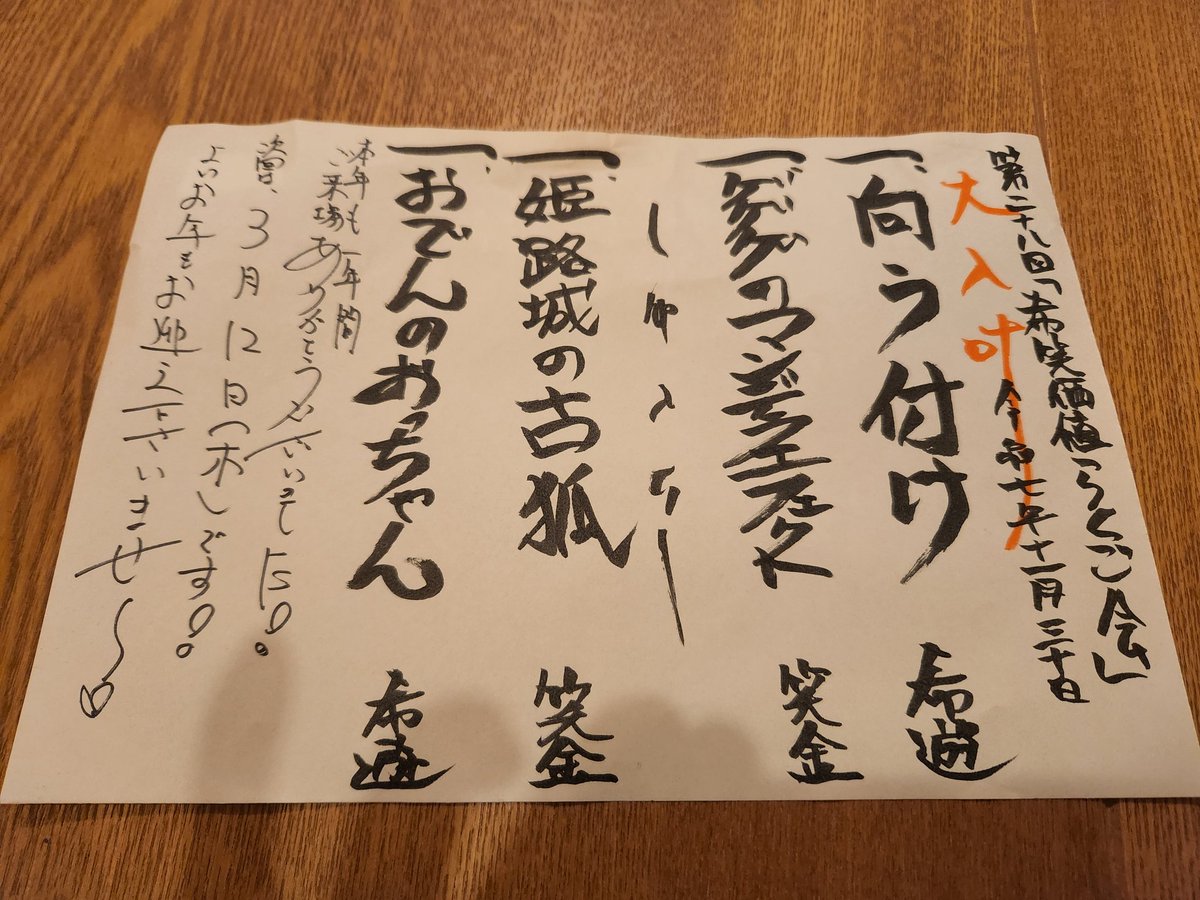 第二十八回「希笑価値らくご会」
令和七年十一月三十日
大入叶
一、向う付け 希遊
一、ゲゲゲのマンデラエフェクト 笑金
ー仲入りー
一、姫路城の古狐 笑金
一、おでんのおっちゃん 希遊
本年も一年間、
ご来場ありがとうございました!。
次回、3月12日(木)です!。
よいお年をお迎え下さいませ〜!